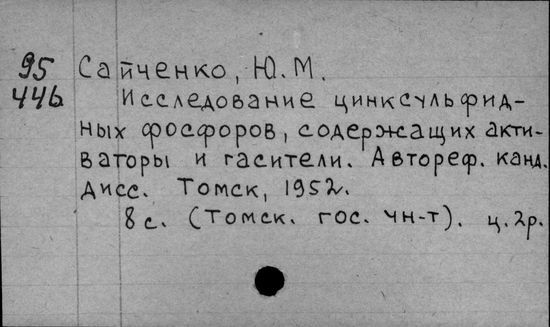 95 Сайченко, Ю.М.
446 Исследование цинксульфид-
ных фосфоров, содержащих акти-
ваторы и гасители. Автореф. канд.
дисс. Томск, 1952.
8 с. (Томск. гос. ун-т). ц. 2р.